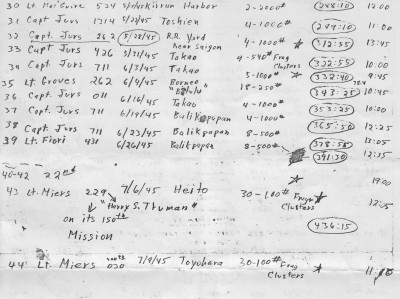 30 Lt Mac Guire 524 Kiirun Harbor 2-2000# 288:10 12:00
31 Capt Jurs 1214 5/28/45 Toshien 4-1000# 299:10 11:00
32 Capt. Jurs 262 5/28/45 R.R. Yard near Saigon 4-1000# ★ 312:55 13:45
33 Capt Jurs 426 5/31/45 Takao 4-540# Frag Clusters 322:55 10:00
34 Capt. Jurs 711 6/3/45 Takao 5-1000# ★ 332:40 9:45
35 Lt. Groves 262 6/4/45 Borneo "Balulu" 18-250# ★ 343:25 10:45
36 Capt. Jurs 011 6/16/45 Takao 4-1000# 353:25 10:00
37 Capt. Jurs 711 6/19/45 Balikpapan 4-1000# 365:50 12:25
38 Capt. Jurs 711 6/23/45 Balikpapan 8-500# 378:55 13:05
39 Lt. Fiori 431 6/26/45 Balikpapan 8-500# 391:30 12:35
40-42 22nd ★ 19:00
43 Lt. Miers 229 7/6/45 Heito 30-100# Frag Clusters ★ 12:05
"Harry S. Truman"
on its 150th
Mission
436:15
44 Lt. Miers 020 7/9/45 Toyohara 30-100# Frag Clusters ★ 11: